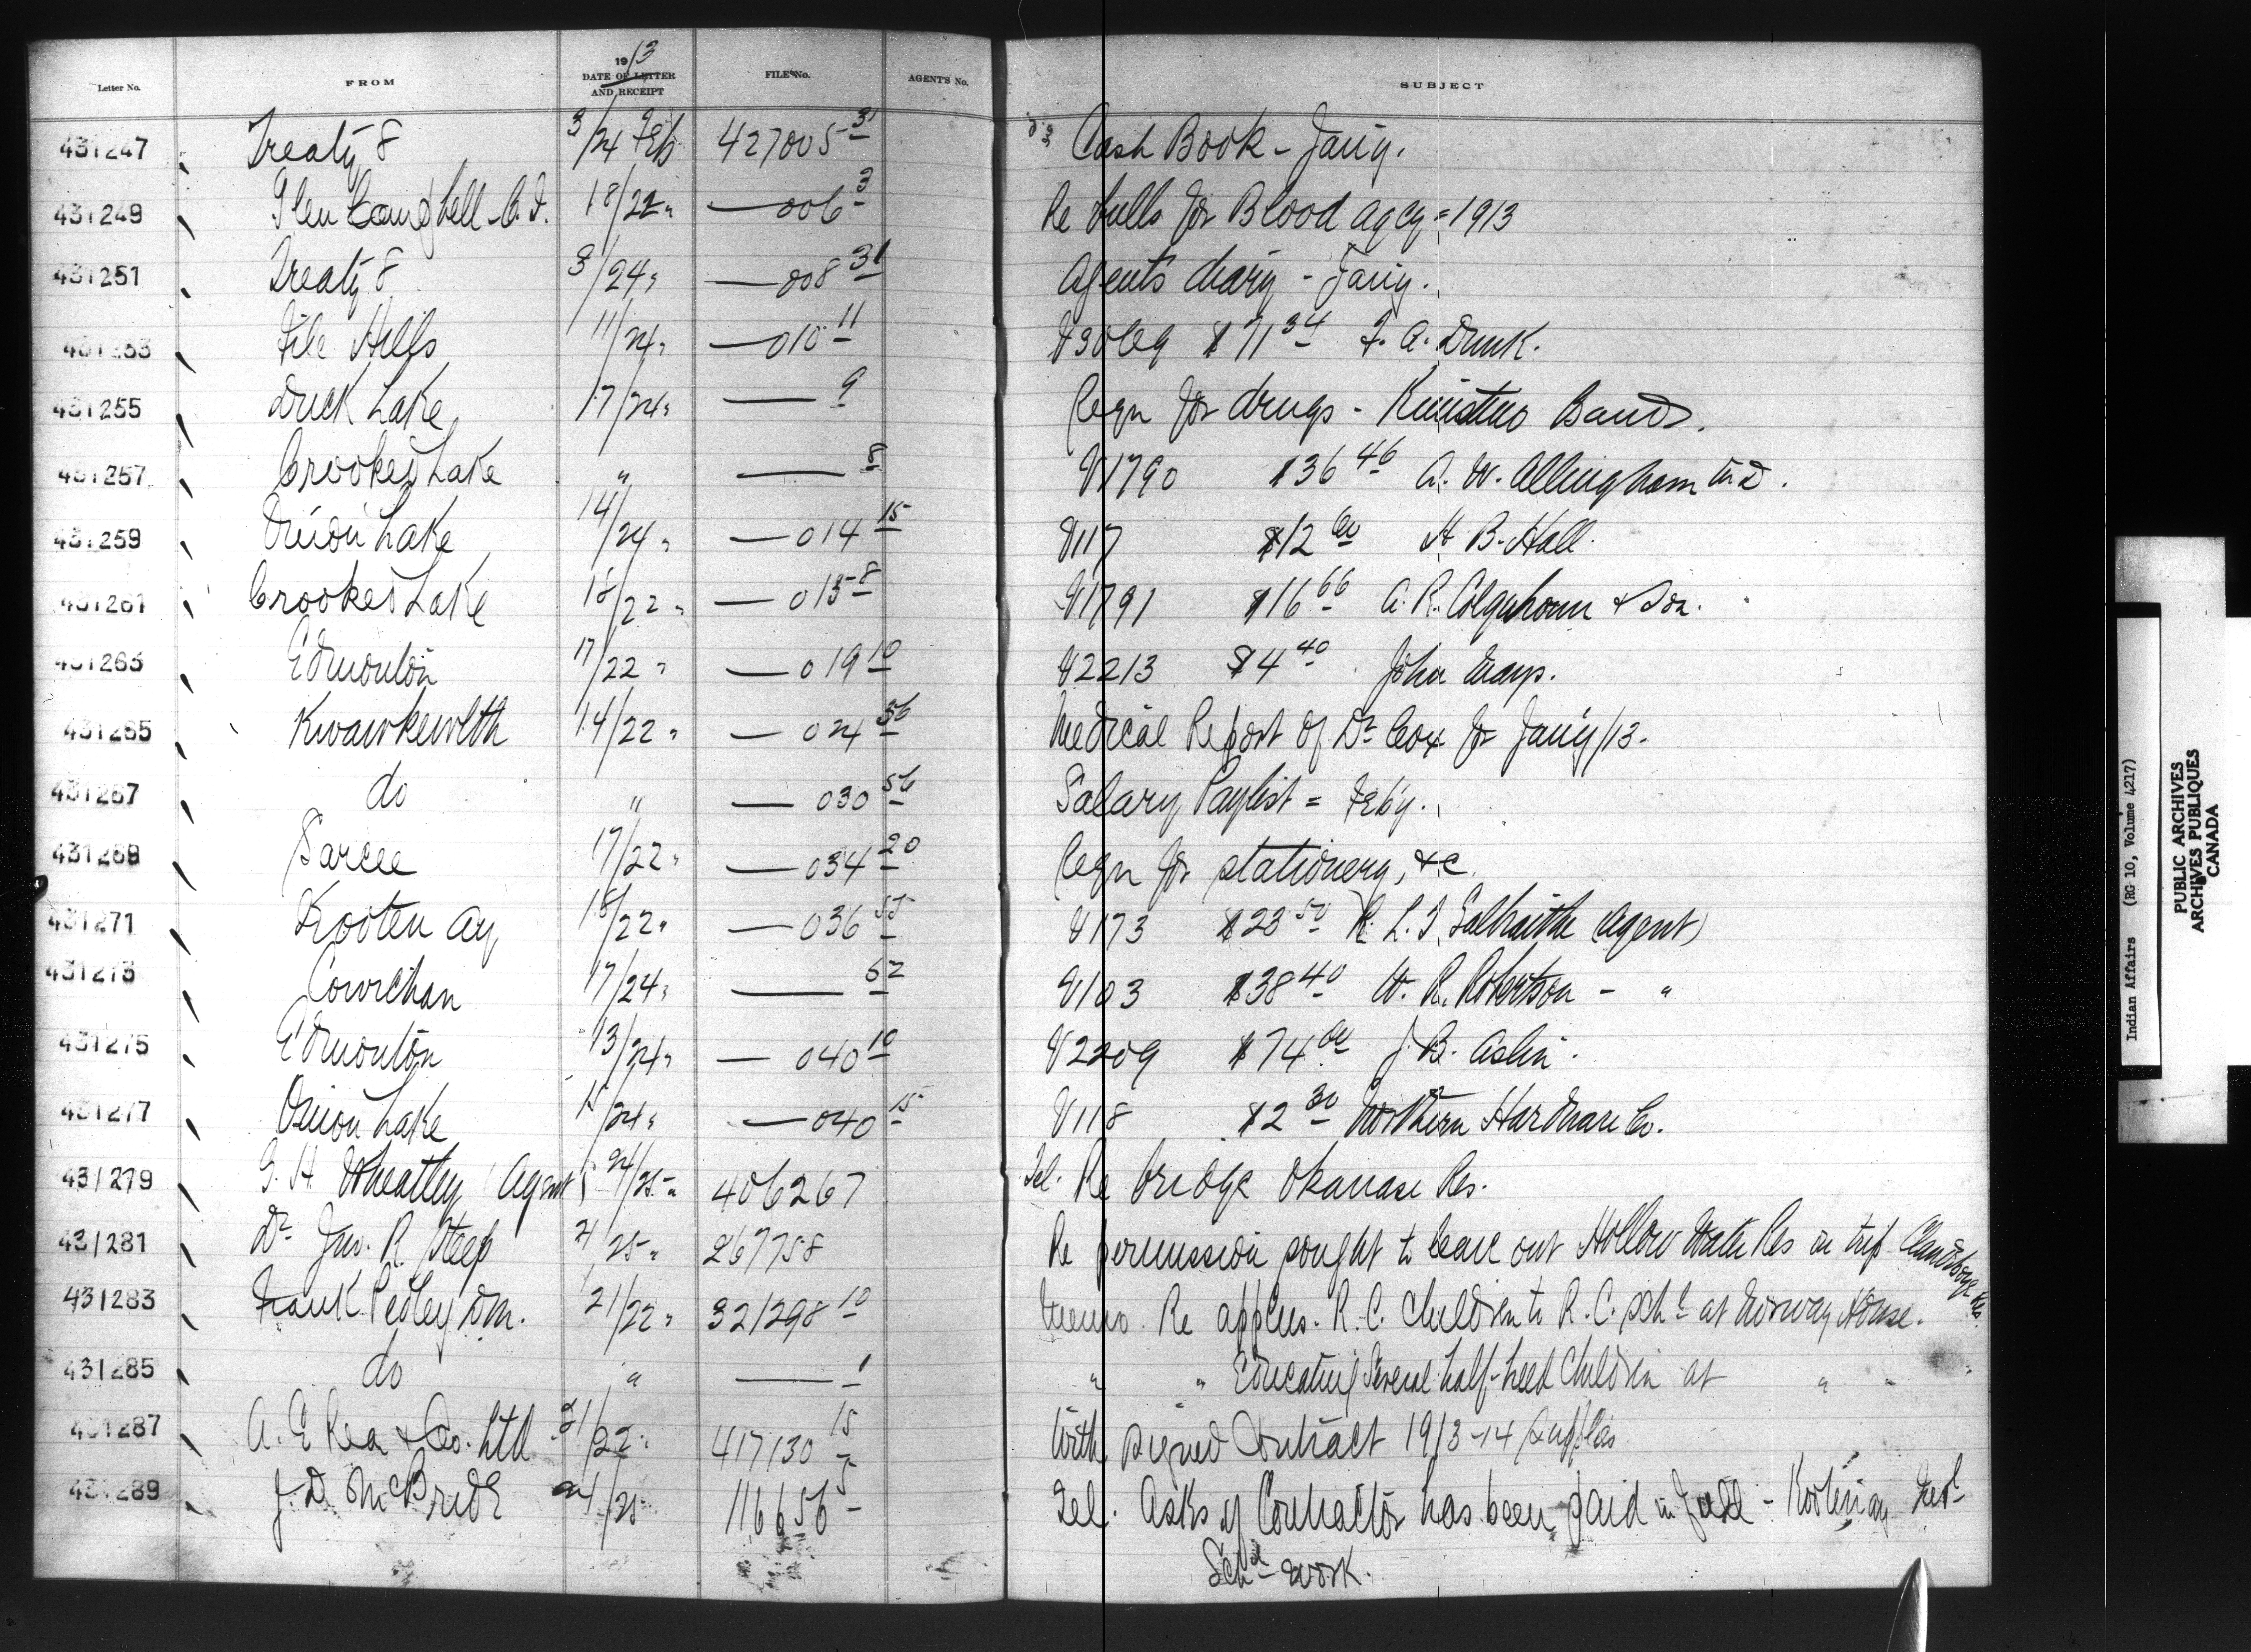 Letter No. FROM 1913 DATE OF LETTER AND RECEIPT FILE No. AGENT'S No. SUBJECT
431247 Treaty 8 3/24 Feb 427005 31 Cash Book - Jany.
431249 Glen Campbell C.I. 18/22 " — 006 3 Re bulls for Blood Agcy = 1913
431251 Treaty 8 3/24 " — 008 31 Agents diary - Jany.
431253 File Hills 11/24 " — 010 11 $71 34 F. A. Dunk.
431255 Duck Lake 17/24 " — 9 Reqn for drugs - Kinistino Band.
431257 Crooked Lake " — 8 V1790 $36 46 A. W. Allingham M.D.
431259 Onion Lake 14/24 " — 014 15 V117 $12 60 H. B. Hall.
431261 Crooked Lake 18/22 " — 015 8 V1791 $16 66 A. R. Colquhoun & Son.
431263 Edmonton 17/22 " — 019 10 V2213 $4 40 John
431265 Kwawkewlth 14/22 " — 024 56 Medical Report of Dr Cox for Jany/13.
431267 do " — 030 56 Salary Paylist = Feby.
431269 Sarcee 17/22 " — 034 20 Reqn for stationery, &c.
431271 Kootenay 18/22 " — 036 55 V173 $23 50 R. L. T. Galbraith (Agent)
431273 Cowichan 17/24 " — 52 V103 $38 40 W. R. Robertson - "
431275 Edmonton 13/24 " — 040 10 V2209 $74 00 J. B. Aslin.
431277 Onion Lake 15/24 " — 040 15 V118 $2 30 Northern Hardware Co.
431279 G. H. Wheatley Agent 24/25 " 406267 Tel. Re bridge Okanase Res.
431281 Dr Jno. R. Steep 21/25 " 267758 Re permission sought to leave out Hollow Water Res in trip Clandeboye Res.
431283 Frank Pedley D.M. 21/22 " 321298 10 Memo. Re applns. R.C. Children to R.C. Schl at Norway House.
431285 do " — 1 " " Educating several half-breed Children at " "
431287 A. E Rea & Co. Ltd 21/22 " 417130 15 With signed Contract 1913-14 supplies
431289 J. D. McBride 24/25 116656 5 Tel. Asks if Contractor has been paid in full - Kootenay Indl
Schl work.
Indian Affairs (RG 10, Volume 4217)
PUBLIC ARCHIVES
ARCHIVES PUBLIQUES
CANADA